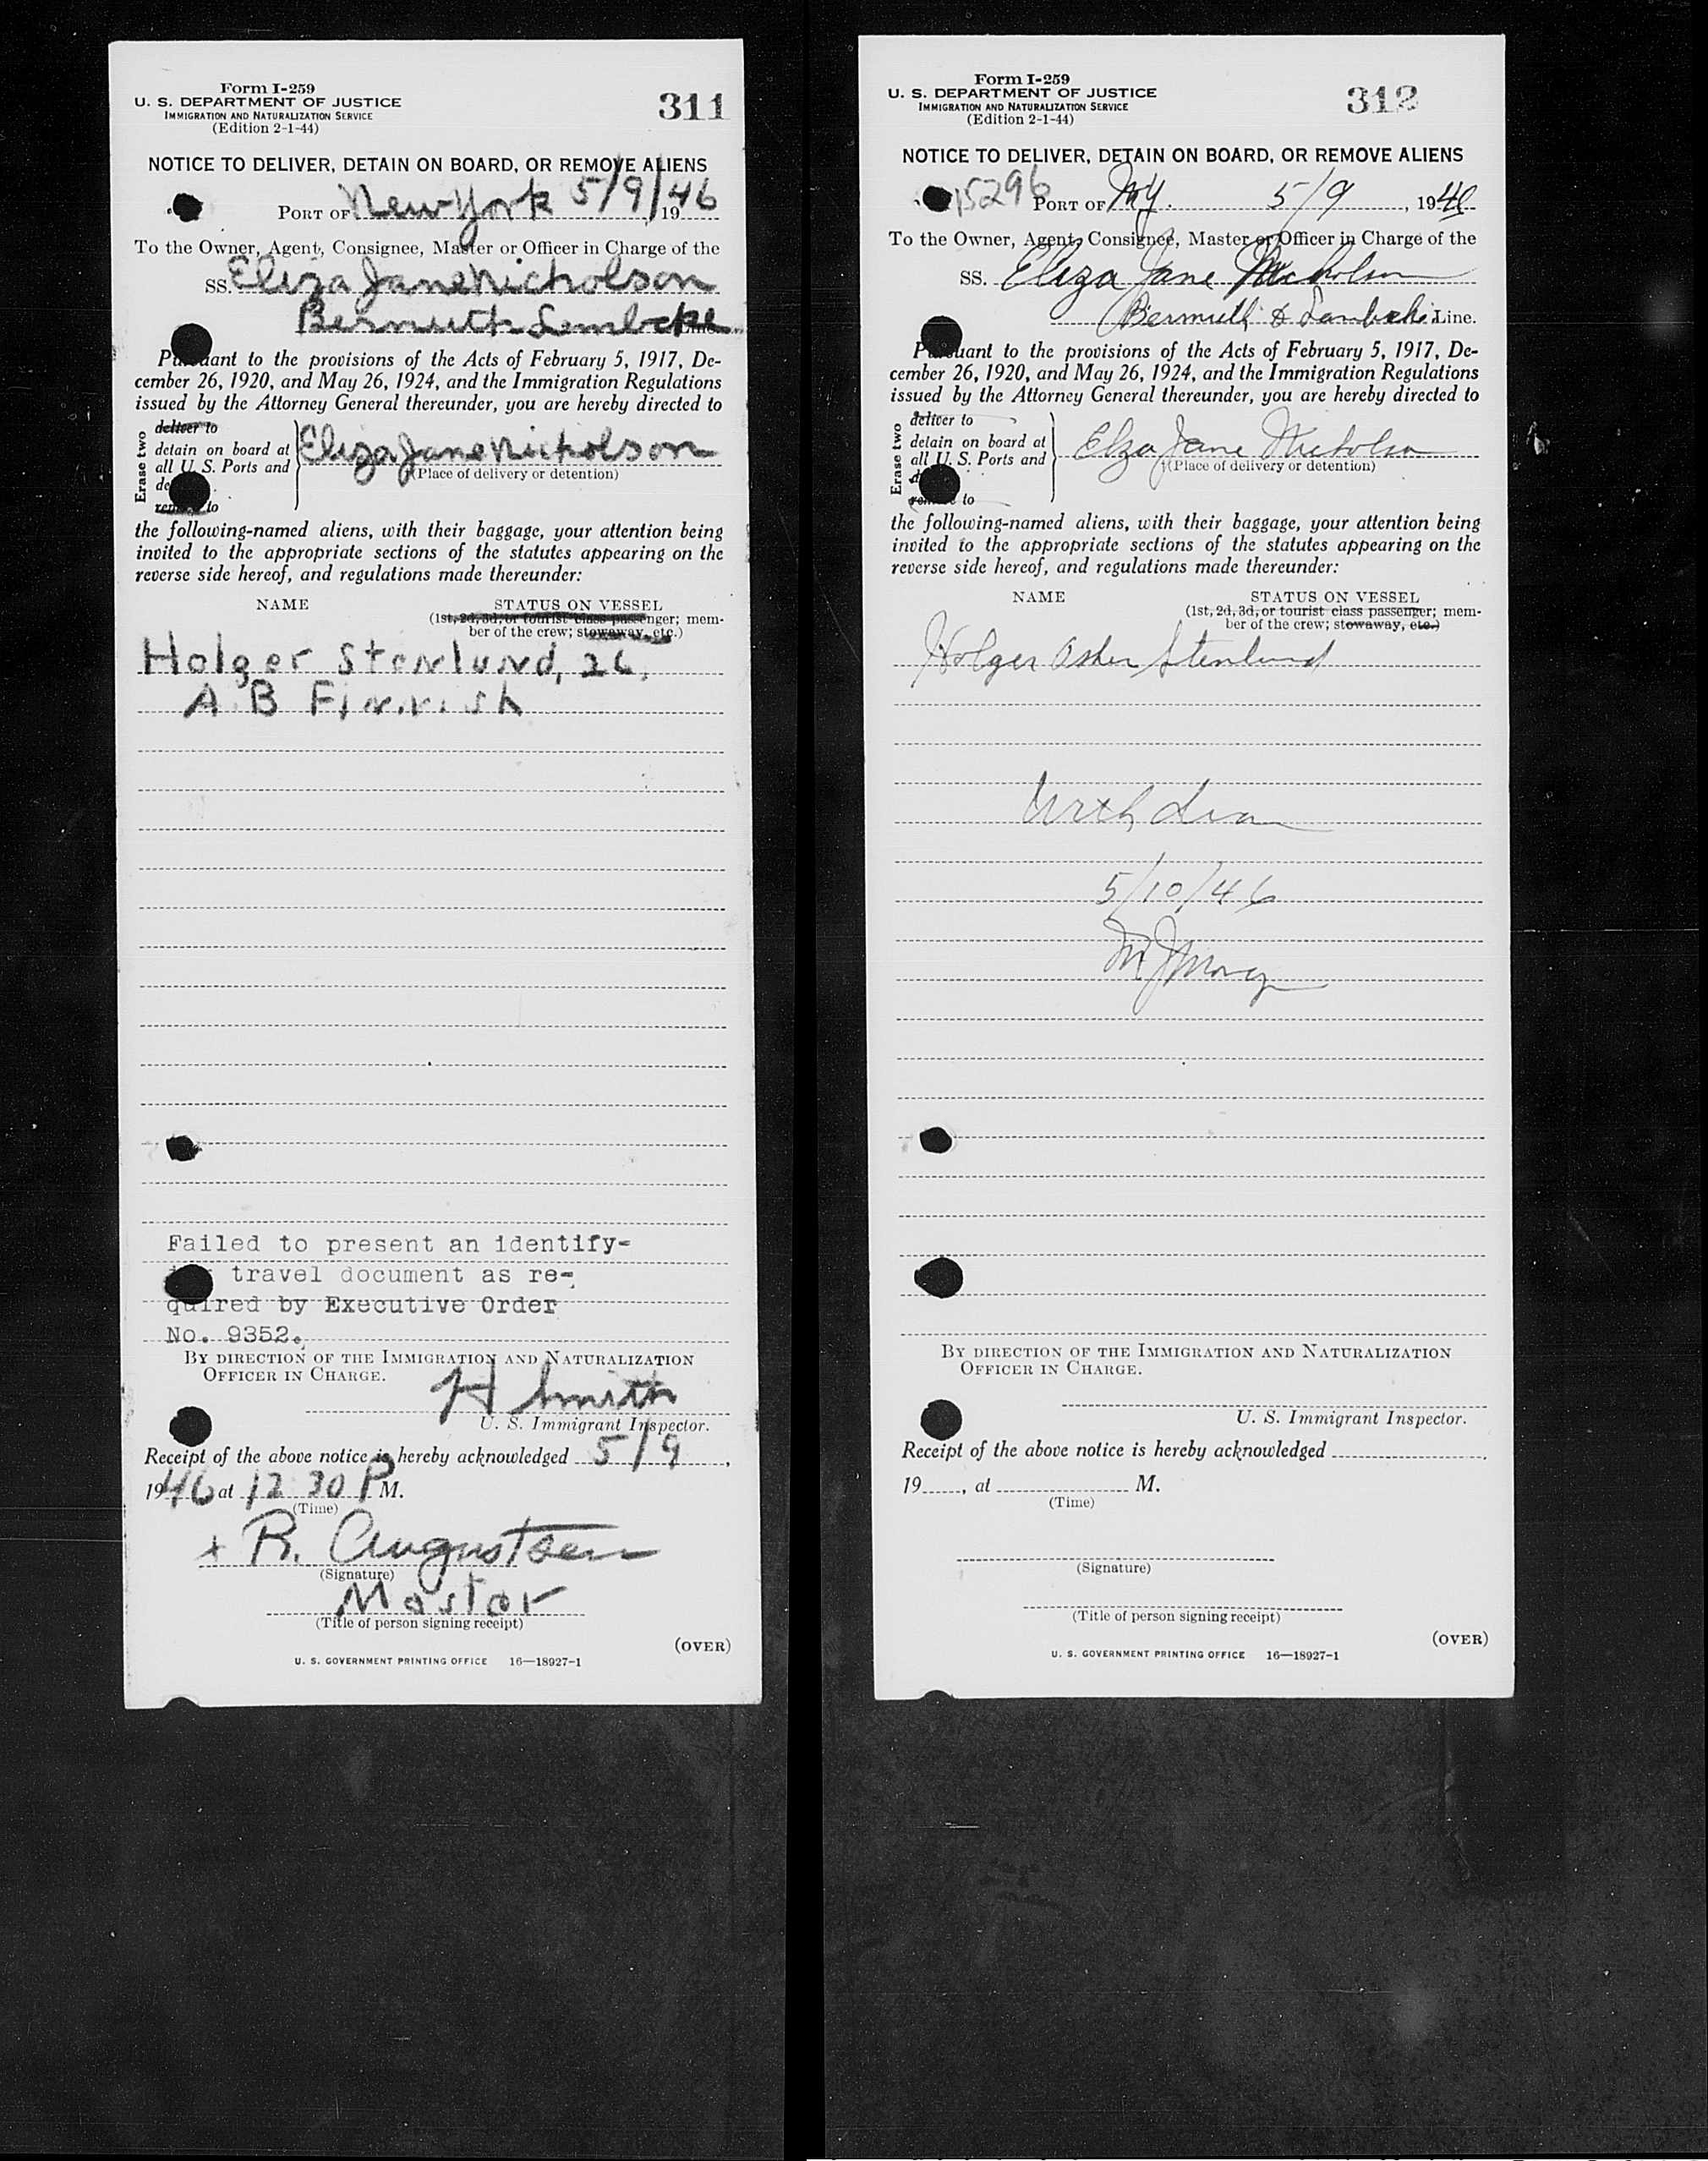 Form I-259
U. S. DEPARTMENT OF JUSTICE
IMMIGRATION AND NATURALIZATION SERVICE
(Edition 2-1-44)
311
NOTICE TO DELIVER, DETAIN ON BOARD, OR REMOVE ALIENS
PORT OF New York 5/9/1946
To the Owner, Agent, Consignee, Master or Officer in Charge of the
SS. Eliza Jane Nicholson
Bermuth Lembcke Line.
Pursuant to the provisions of the Acts of February 5, 1917, De-
cember 26, 1920, and May 26, 1924, and the Immigration Regulations
issued by the Attorney General thereunder, you are hereby directed to
Erase two
deliver to
detain on board at
all U. S. Ports and
de
remove to
Eliza Jane Nicholson
(Place of delivery or detention)
the following-named aliens, with their baggage, your attention being
invited to the appropriate sections of the statutes appearing on the
reverse side hereof, and regulations made thereunder:
NAME
STATUS ON VESSEL
(1st, 2d, 3d, or tourist class passenger; mem-
ber of the crew; stowaway, etc.)
Holger Stenlund, 26,
A B Finnish
Failed to present an identify-
travel document as re-
quired by Executive Order
No. 9352.
BY DIRECTION OF THE IMMIGRATION AND NATURALIZATION
OFFICER IN CHARGE.
H Smith
U. S. Immigrant Inspector.
Receipt of the above notice is hereby acknowledged 5/9,
1946 at 12 30 P M.
(Time)
+ R. Augustsen
(Signature)
Master
(Title of person signing receipt)
(OVER)
U. S. GOVERNMENT PRINTING OFFICE 16—18927-1
Form I-259
U. S. DEPARTMENT OF JUSTICE
IMMIGRATION AND NATURALIZATION SERVICE
(Edition 2-1-44)
312
NOTICE TO DELIVER, DETAIN ON BOARD, OR REMOVE ALIENS
15296 PORT OF NY. 5/9, 1946
To the Owner, Agent, Consignee, Master or Officer in Charge of the
SS. Eliza Jane Nicholson
Bermuth & Lembcke Line.
Pursuant to the provisions of the Acts of February 5, 1917, De-
cember 26, 1920, and May 26, 1924, and the Immigration Regulations
issued by the Attorney General thereunder, you are hereby directed to
Erase two
deliver to
detain on board at
all U. S. Ports and
d
remove to
Elza Jane Nicholson
(Place of delivery or detention)
the following-named aliens, with their baggage, your attention being
invited to the appropriate sections of the statutes appearing on the
reverse side hereof, and regulations made thereunder:
NAME
STATUS ON VESSEL
(1st, 2d, 3d, or tourist class passenger; mem-
ber of the crew; stowaway, etc.)
Holger Osker Stenlund
5/10/46
BY DIRECTION OF THE IMMIGRATION AND NATURALIZATION
OFFICER IN CHARGE.
U. S. Immigrant Inspector.
Receipt of the above notice is hereby acknowledged
19, at M.
(Time)
(Signature)
(Title of person signing receipt)
(OVER)
U. S. GOVERNMENT PRINTING OFFICE 16—18927-1